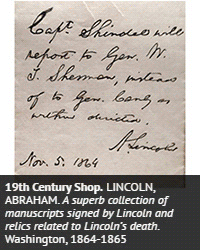 Capt. Shindel will
report to Gen. W.
T. Sherman, instead
of to Gen. Canby as
within directed.
A. Lincoln
Nov. 5. 1864
19th Century Shop. LINCOLN,
ABRAHAM. A superb collection of
manuscripts signed by Lincoln and
relics related to Lincoln's death.
Washington, 1864-1865